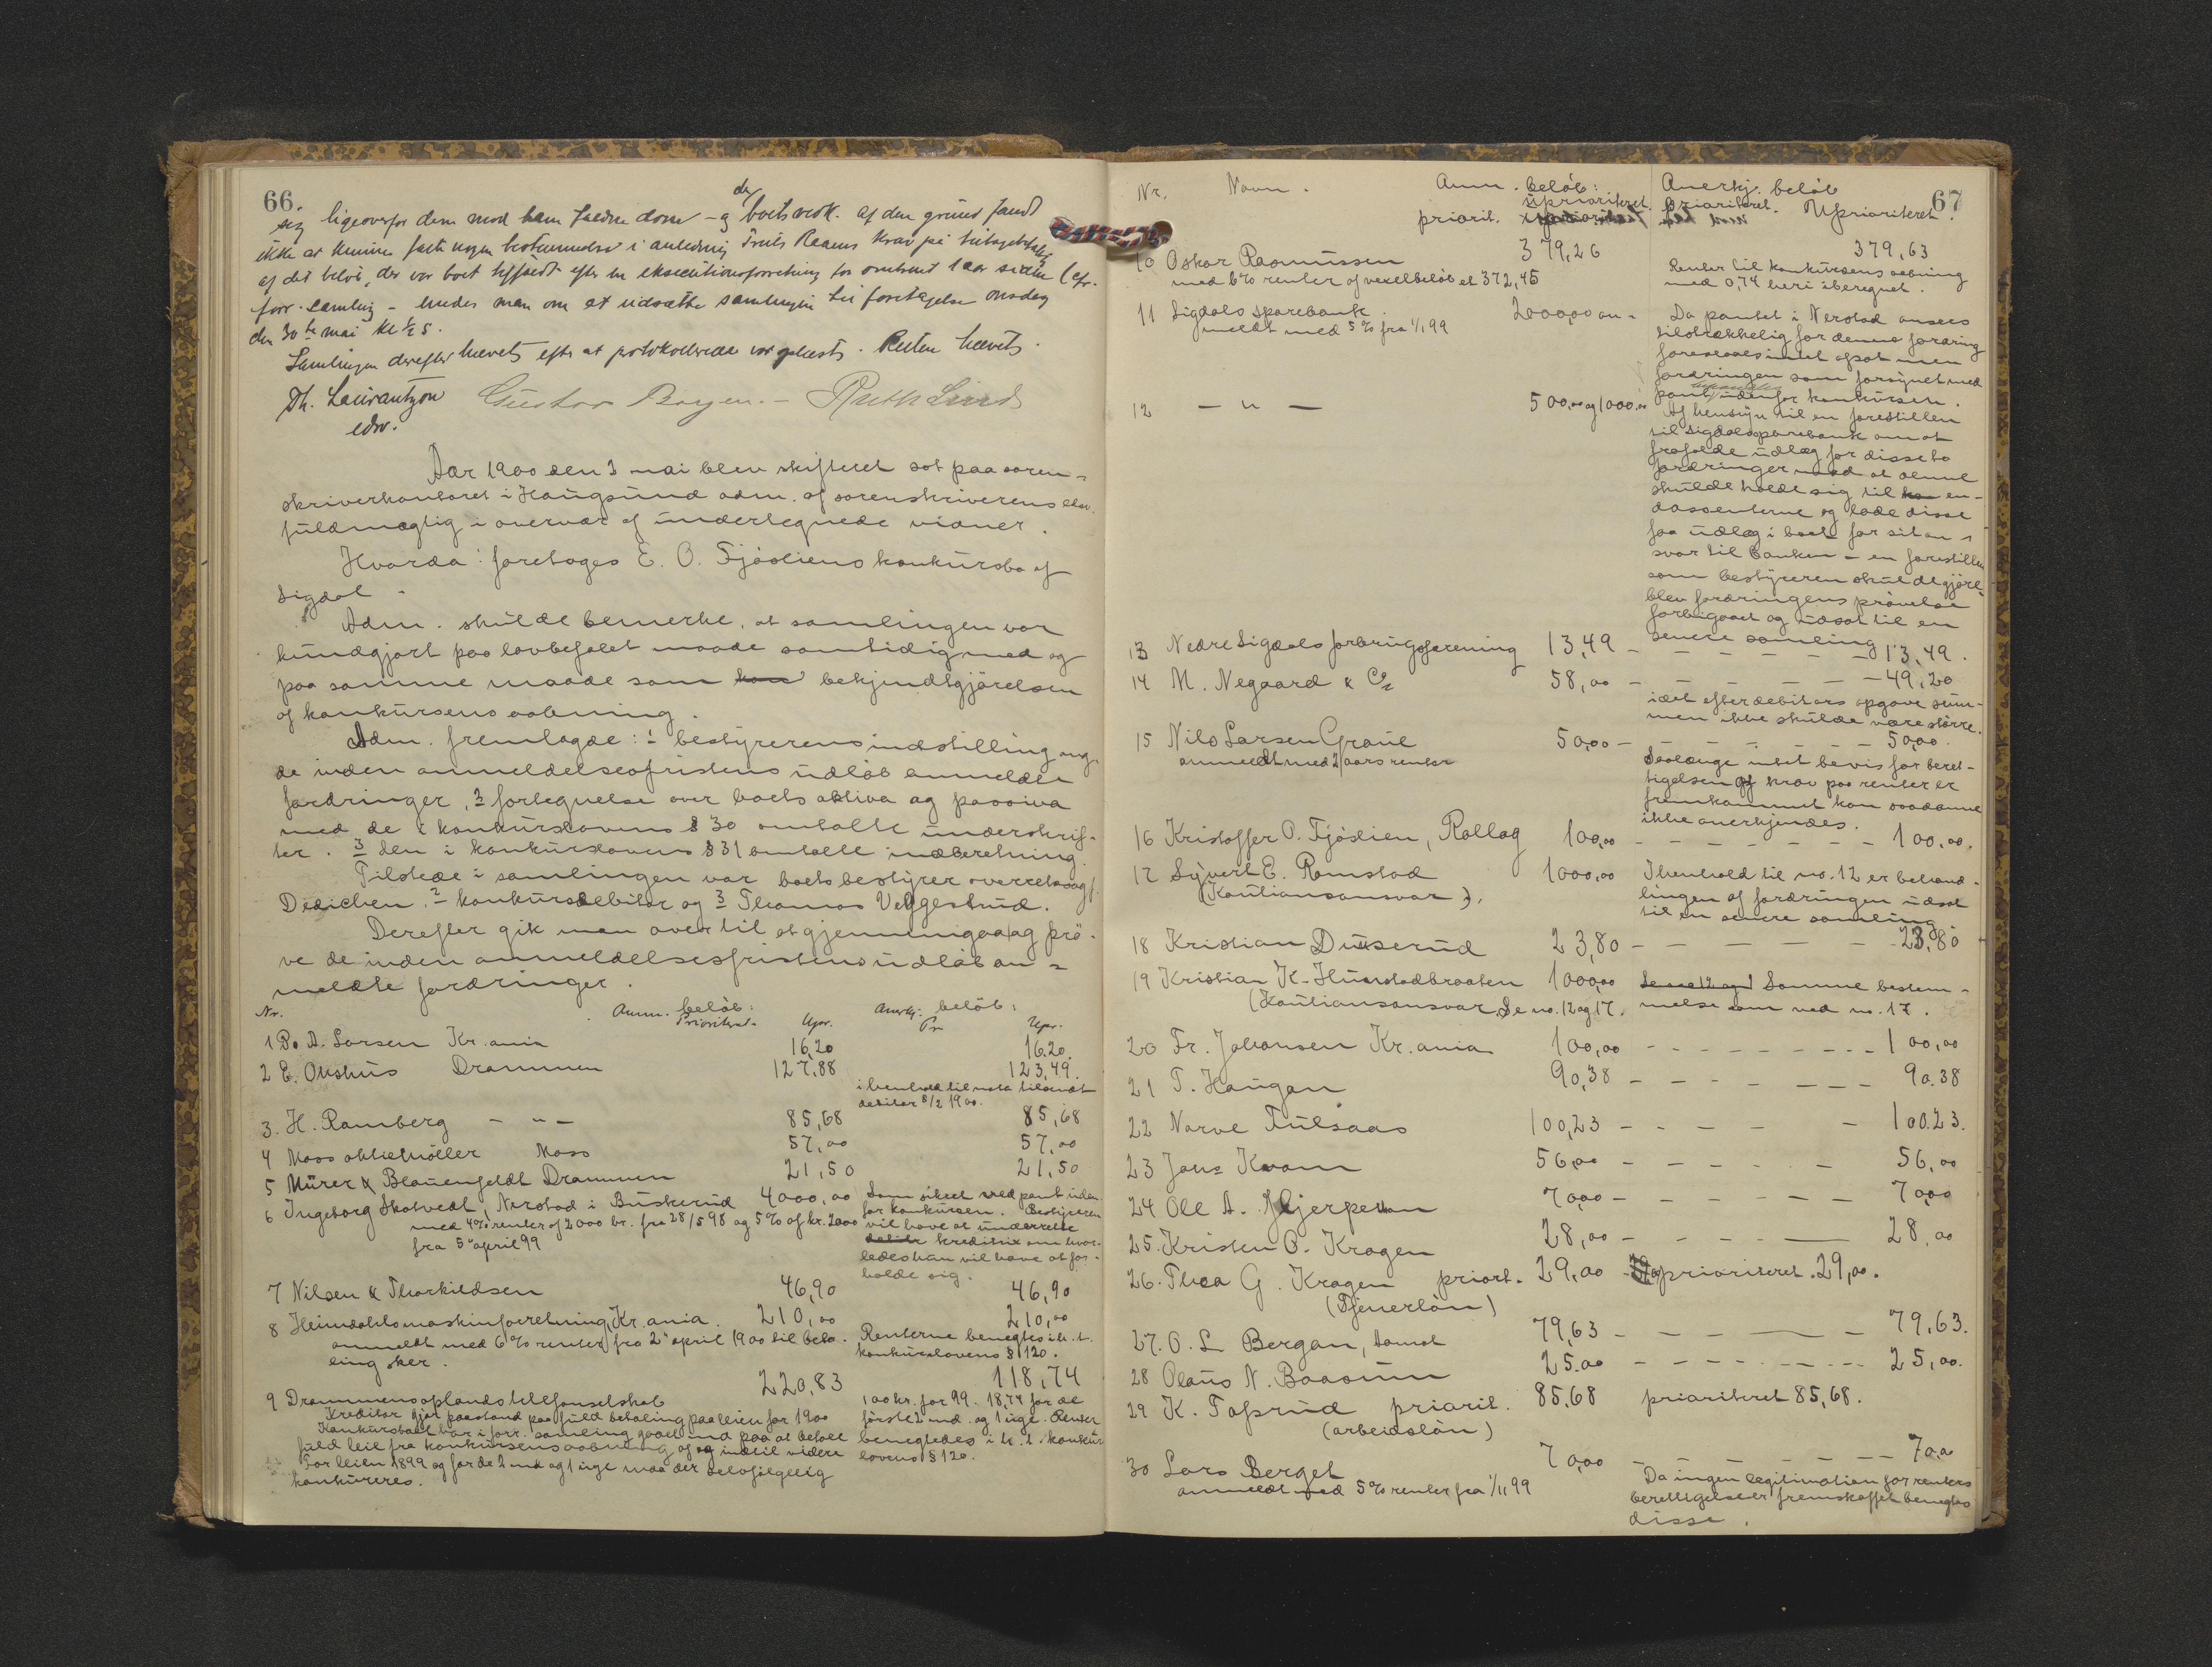 66.
sig ligeoverfor dem mod ham faldne dom – og da boets vedk. af den grund fandt
ikke at kunne fatte nogen bestemmelse i anledning Truls Reaens krav på tilbagebetaling
af det beløb, der var boet tilført efter en eksecutionsforretning for omtrent 1 aar siden (cfr.
forr. samling – enedes man om at udsætte samlingen til foretagelse onsdag
den 30te mai kl ½ 5.
Samlingen derefter hævet efter at protokollerede var oplæst. Retten hævet.
Th. Lauvantzon Gustav Borgen. – Ruth Lind
edsv.
Aar 1900 den 3 mai blev skifteret sat paa soren-
skriverkontoret i Haugsund adm. af sorenskriverens edsv.
fuldmægtig i overvær af undertegnede vidner.
Hvorda: foretoges E. O. Fjøsliens konkursbo af
Sigdal.
Adm. skulde bemerke, at samlingen var
kundgjort paa lovbefalet maade samtidig med og
paa samme maade som kon bekjendtgjørelsen
af konkursens aabning.
Adm. fremlagde: 1 bestyrerens indstilling ang.
de inden anmeldelsesfristens udløb anmeldte
fordringer, 2 fortegnelse over boets aktiva og passiva
med de i konkurslovens § 30 omtalte underskrif-
ter. 3 den i konkurslovens § 31 omtalte indberetning.
Tilstede i samlingen var boets bestyrer overretssagf.
Dedichen, 2 konkursdebitor og 3 Thomas Veggestrud.
Derefter gik man over til at gjennemgaa og prø-
ve de inden anmeldelsesfristens udløb an-
meldte fordringer.
Nr. Anm. beløb: Anerkj. beløb:
Prioriteret. Upr. Pr Upr.
1 P. A. Larsen Kr.ania 16,20 16.20.
2 E. Olishus Drammen 127,88 123,49.
i henhold til nota tilsendt
debitor 8/2 1900.
3. H. Ramberg – " – 85,68 85,68
4 Moss aktiemøller Moss 57,00 57,00
5 Mürer & Blauenfeldt Drammen 21,50 21,50
6 Ingeborg Skatvedt, Nerstad i Buskerud 4000,00 Som sikret ved pant uden-
med 4% renter af 2000 kr. fra 28/5 98 og 5% af kr. 2000 for konkursen. Bestyreren
fra 5te april 99 vil have at underrette
debitr kreditrix om hvor-
ledes hun vil have at for-
holde sig.
7 Nilsen & Thorkildsen 46,90 46,90
8 Heimdahls maskinforretning, Kr.ania. 210,00 210,00
anmeldt med 6% renter fra 2den april 1900 til beta- Renterne benegtes i h. t.
ling sker. konkurslovens § 120.
9 Drammens oplands telefonselskab 220,83 118,74
Kreditor gjør paastand paa fuld betaling paa leien for 1900 100 kr. for 99. 18,74 for de
Konkursboet har i forr. samling gaaet ind paa at betale første 2 md. og 1 uge. Renter
fuld leie fra konkursens aabning af og indtil videre benegtedes i h. t. konkurs-
For leien 1899 og for de 2 md og 1 uge maa der selvfølgelig lovens § 120.
konkureres.
67
Nr. Navn. Anm. beløb: Anerkj. beløb
priorit. upriorit­eret. Prioriteret. Uprioriteret.
10 Oskar Rasmussen 379,26 379,63
med 6% renter af vexelbeløbet 372,45 Renter til konkursens aabning
med 0,74 heri iberegnet.
11 Sigdals sparebank. 2000,00 an- Da pantet i Nerstad ansees
meldt med 5% fra 1/1 99 tilstrækkelig for denne fordring
foreslaaes intet afsat men
fordringen som forsynet med
pant behandles udenfor konkursen.
12 – " – 500,00 og 1000,00 Af hensyn til en forestillen
til Sigdals sparebank om at
frafalde udlæg for disse to
fordringer mod at denne
skulde holde sig til ka en-
dossenterne og lade disse
faa udlæg i boet for sit an-
svar til banken – en forestillen
som bestyreren skulde gjøre,
blev fordringens prøvelse
forbigaaet og udsat til en
senere samling
13 Nedre Sigdals forbrugsforening 13,49 – – – – – 13,49.
14 M. Negaard & Co 58,00 – – – – – 49,20
idet efter debitors opgave sum-
men ikke skulde være større.
15 Nils Larsen Graue 50,00 – – – – – 50,00.
anmeldt med 2 aars renter Saalænge intet bevis for beret-
tigelsen af krav paa renter er
fremkommet kan saadanne
ikke anerkjendes.
16 Kristoffer O. Fjøslien, Rollag 100,00 – – – – – 100,00.
17 Syvert E. Ramstad 1000,00 I henhold til no. 12 er behand-
(Kautionsansvar). lingen af fordringen udsat
til en senere samling
18 Kristian Dukserud 23,80 – – – – – 23,80
19 Kristian K. Hunstadbraaten 1000,00 Se no 12 og 1 Samme bestem-
(Kautionsansvar, Se no. 12 og 17. melse som ved no. 17.
20 Fr. Johansen Kr.ania 100,00 – – – – – 100,00
21 T. Haugan 90,38 – – – – – 90.38
22 Narve Tulsaas 100,23 – – – – 100.23.
23 Jons Kvam 56,00 – – – – – 56,00
24 Ole A. Hjerpekan 70,00 – – – – – 70,00
25. Kristen O. Kragen 28,00 – – – – – 28,00
26. Thea G. Kragen priort. 29,00 – prioriteret. 29,00.
(Tjenerløn)
27. O. L Bergan, tomt 79,63 – – – – – 79,63.
28 Olaus N. Baasum 25.00 – – – – – 25,00.
29 K. Tafsrud priorit. 85,68 prioriteret 85,68.
(arbeidsløn)
30 Lars Berget 70,00 – – – – – 70,00
anmeldt med 5% renter fra 1/11 99 Da ingen legitimation for renters
berettigelse er fremskaffet benegtes
disse.